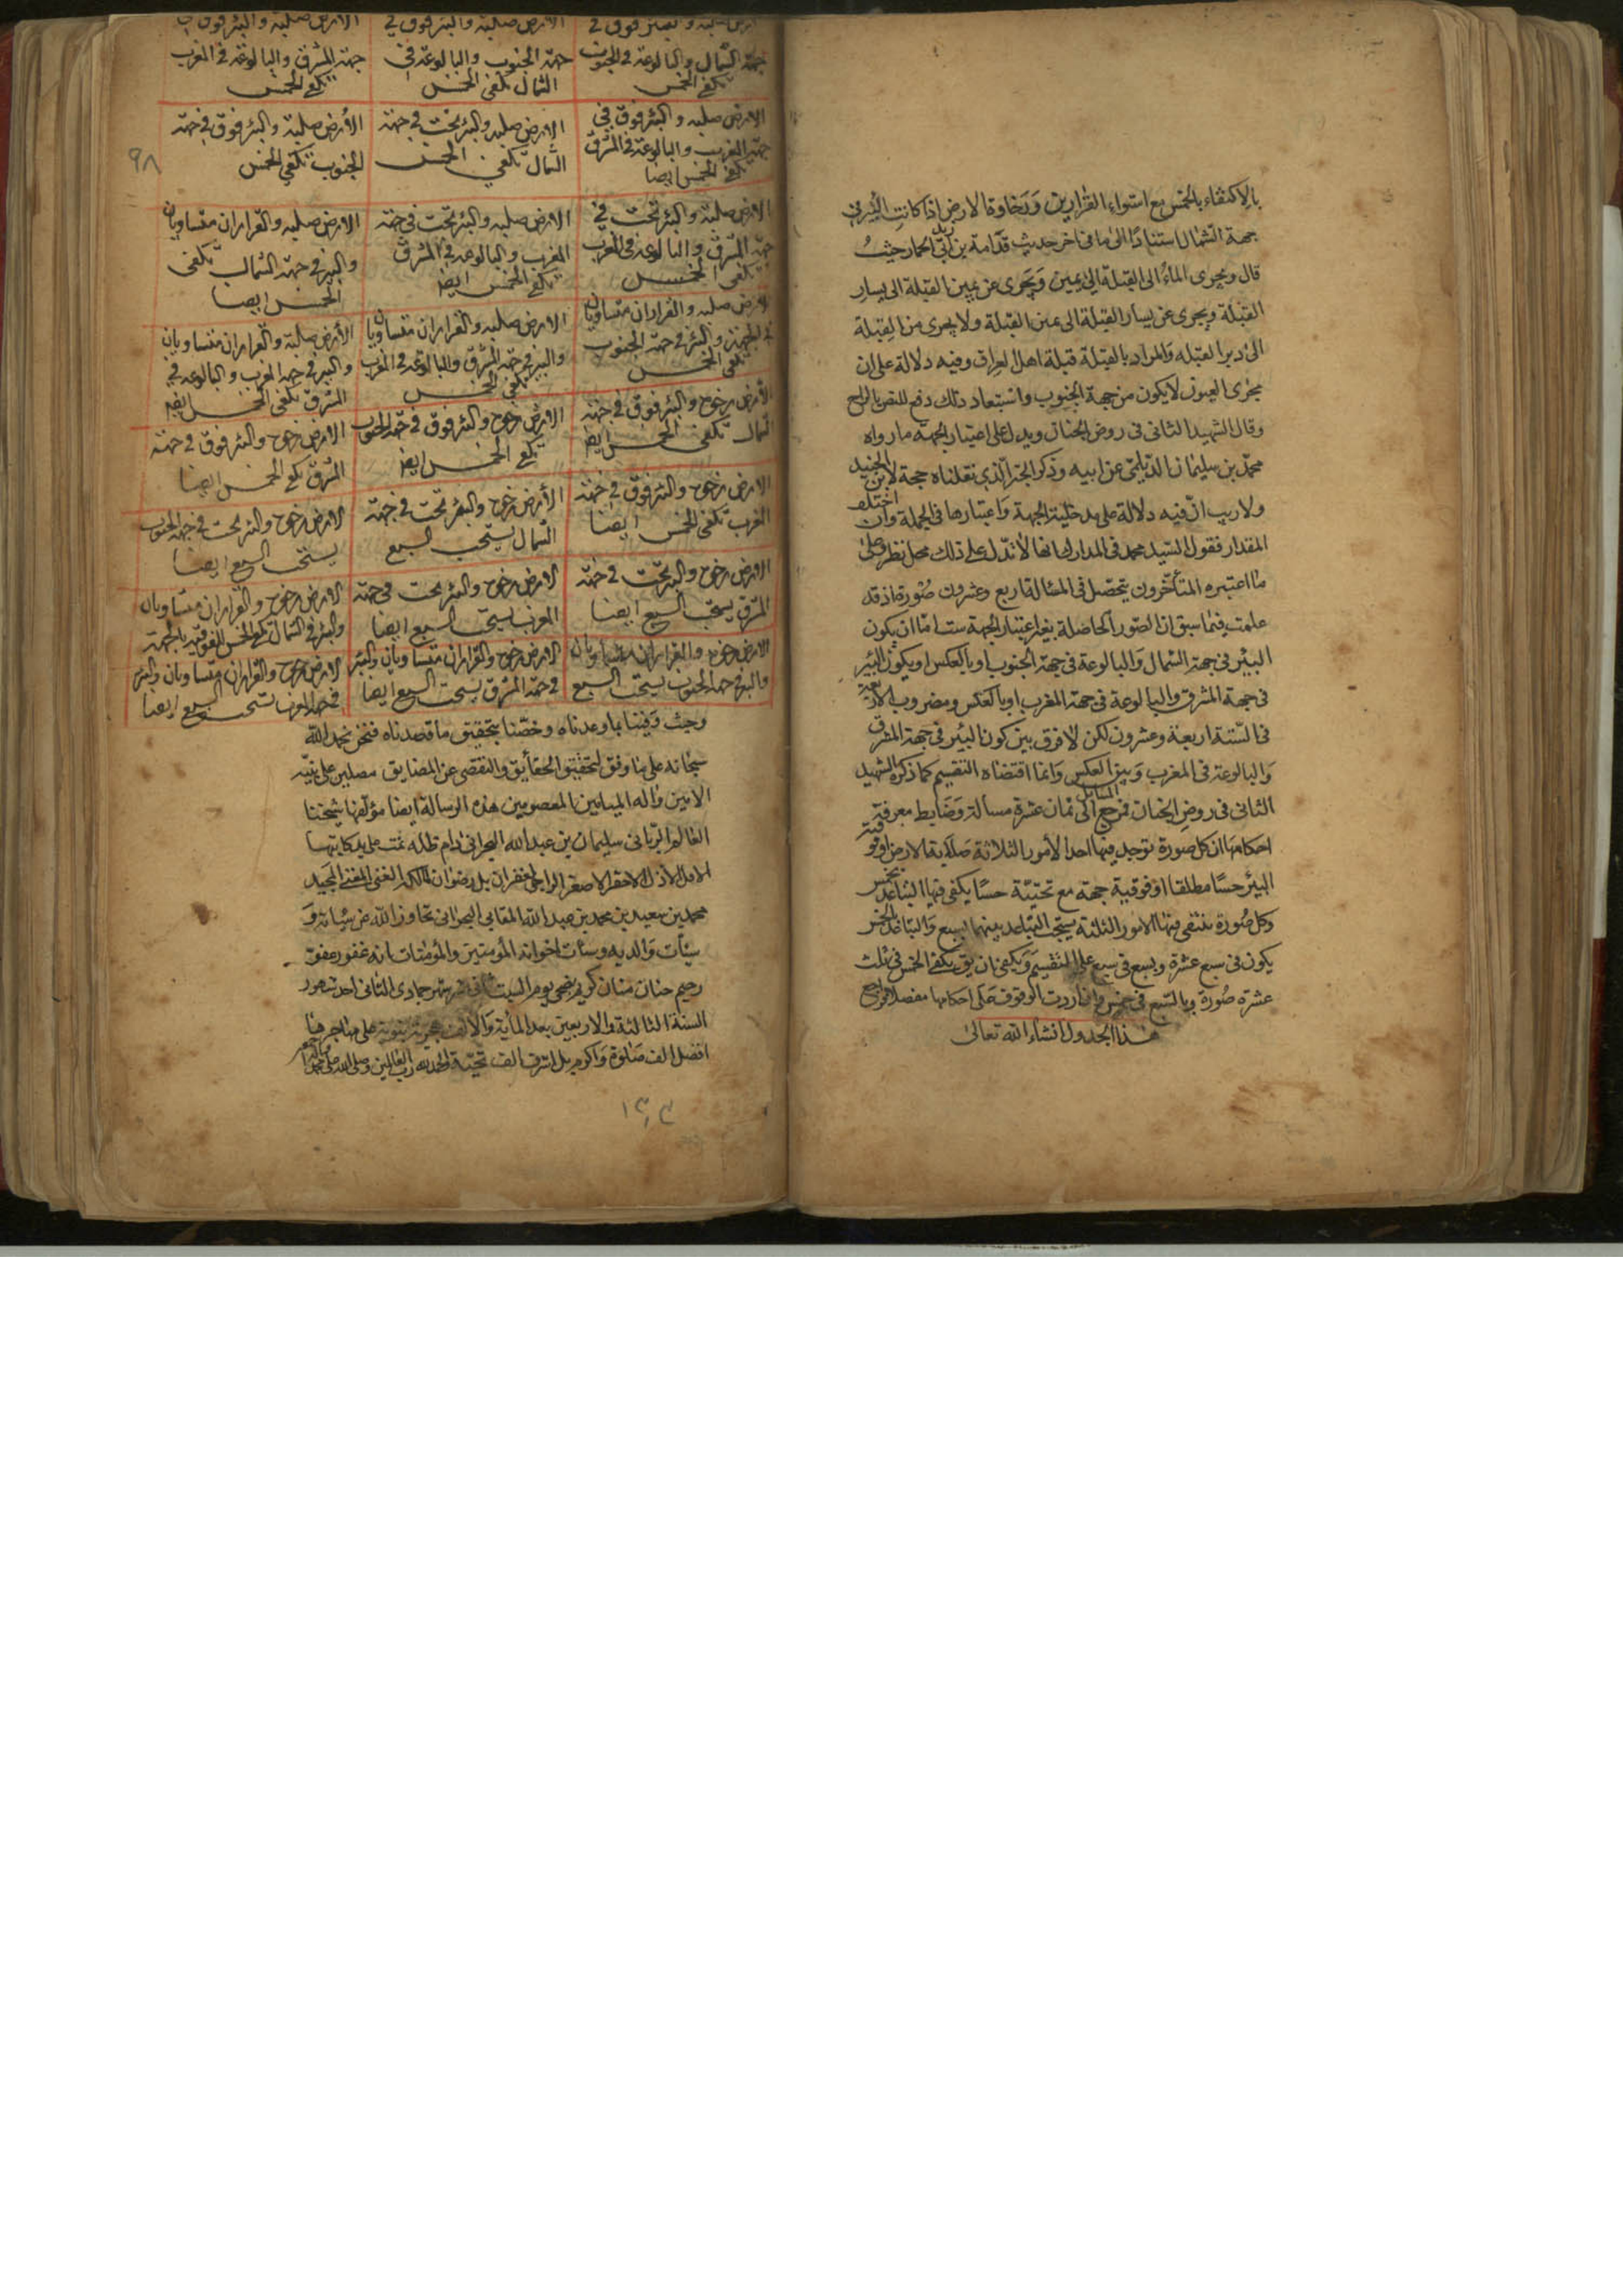 بالاكتفاء بالخمس مع استواء القرارين ورخاوة الارض اذا كانت البئر في
جهة الشمال استنادا الى ما في اخر حديث قدامة بن ابي زيد الحمار حيث
قال ويجرى الماء الى القبلة الى يمين ويجرى عن يمين القبلة الى يسار
القبلة ويجرى عن يسار القبلة الى يمين القبلة ولا يجرى من القبلة
الى دبر القبله والمراد بالقبلة قبلة اهل العراق وفيه دلالة على ان
مجرى العيون لا يكون من جهة الجنوب واستبعاد ذلك دفع للنص بالراح
وقال الشهيد الثانى فى روض الجنان ويدل على اعتبار الجهة ما رواه
محمد بن سليمان الديلمى عن ابيه وذكر الخبر الذي نقلناه حجة لابن الجنيد
ولا ريب ان فيه دلالة على مدخلية الجهة واعتبارها فى الجملة وان اختلف
المقدار فقول السيد محمد فى المدارك انها لا تدل على ذلك محل نظر وعلى
ما اعتبره المتأخرون يتحصل فى المسئالة اربع وعشرون صورة اذ قد
علمت فيما سبق ان الصور الحاصلة بغير اعتبار الجهة ست اما ان يكون
البئر فى جهة الشمال والبالوعة فى جهة الجنوب او بالعكس او يكون البئر
فى جهة المشرق والبالوعة فى جهة المغرب او بالعكس ومضروب الاربعة
فى الستة اربعة وعشرون لكن لا فرق بين كون البئر فى جهة المشرق
والبالوعة فى المغرب وبين العكس وانما اقتضاه التقسيم كما ذكره الشهيد
الثانى فى روض الجنان فمرجع المسائل الى ثمان عشرة مسالة وضابط معرفة
احكامها ان كل صورة توجد فيها احد الأمور الثلاثة صلابة الارض او فوقية
البئر حسا مطلقا او فوقية جهة مع تحتية حسا يكفى فيها التباعد بخمس
وكل صورة ينتفى فيها الامور الثلثة يستحب التباعد بينهما بسبع والتباعد بالخمس
يكون فى سبع عشرة وبسبع فى سبع على التقسيم ويكفى ان يق يكفى الخمس فى ثلث
عشرة صورة وبالسبع فى خمس وان اردت الوقوف على احكامها مفصلا فراجع
هذا الجدول انشاء الله تعالى
٩٨
جهة الشمال والبالوعة في الجنوب يكفي الخمس
جهة الجنوب والبالوعة في الشمال يكفى الخمس
جهة المشرق والبالوعة في المغرب يكفي الخمس
الارض صلبه والبئر فوق في جهة المغرب والبالوعة في المشرق يكفي الخمس ايضا
الارض صلبه والبئر تحت في جهة الشمال يكفي الخمس
الأرض صلبة والبئر فوق في جهة الجنوب يكفي الخمس
الارض صلبة والبئر تحت في جهة المشرق والبالوعة في المغرب يكفى الخمس
الارض صلبه والبئر تحت في جهة المغرب والبالوعه في المشرق يكفي الخمس ايضا
الارض صلبه والقراران متساويان والبئر في جهة الشمال يكفى الخمس ايضا
الارض صلبه والقراران متساويان والبئر في جهة الجنوب يكفى الخمس
الارض صلبه والقراران متساويان والبئر في جهة المشرق والبالوعة في المغرب يكفي الخمس
الأرض صلبة والقراران متساويان والبئر في جهة المغرب والبالوعه في المشرق يكفى الخمس ايضا
الأرض رخوة والبئر فوق في جهة الشمال يكفى الخمس ايضا
الارض رخوة والبئر فوق في جهة الجنوب يكفي الخمس ايضا
الارض رخوة والبئر فوق في جهة المشرق يكفي الخمس ايضا
الارض رخوة والبئر فوق في جهة المغرب يكفى الخمس ايضا
الأرض رخوة والبئر تحت في جهة الشمال يستحب السبع
الارض رخوة والبئر تحت في جهة الجنوب يستحب السبع ايضا
الارض رخوة والبئر تحت في جهة المشرق يستحب السبع ايضا
الارض رخوة والبئر تحت في جهة المغرب يستحب السبع ايضا
الارض رخوة والقراران متساويان والبئر في الشمال يكفي الخمس للفوقية بالجهة
الارض رخوة والقراران متساويان والبئر في جهة الجنوب يستحب السبع
الارض رخوة والقراران متساويان والبئر في جهة المشرق يستحب السبع ايضا
الارض رخوة والقراران متساويان والبئر في جهة المغرب يستحب السبع ايضا
وحيث وفينا بما وعدناه وخضنا بتحقيق ما قصدناه فنحن نحمد الله
سبحانه على ما وفق لتحقيق الحقايق والتقصى عن المضايق مصلين على نبيه
الامين واله الميامين المعصومين هذه الرسالة ايضا مؤلفها شيخنا
العالم الربانى سليمان بن عبد الله البحرانى دام ظله تمت على يد كاتبها
الاقل الأذل الاحقر الاصغر الراجى لغفران بل رضوان المالك الغنى المغنى المجيد
محمد بن سعيد بن محمد بن عبد الله المقابى البحرانى تجاوز الله عن سيئاته و
سيئات والديه وسيئات اخوانه المؤمنين والمؤمنات انه غفور عفو
رحيم حنان منان كريم بضحى يوم السبت ثانى شهر جمادى الثانى احد شهور
السنة الثالثة والاربعين بعد المأية والالف هجرية نبوية على مهاجرها
افضل الف صلوة واكرم بل اشرف الف تحية والحمد لله رب العالمين وصلى الله على محمد واله